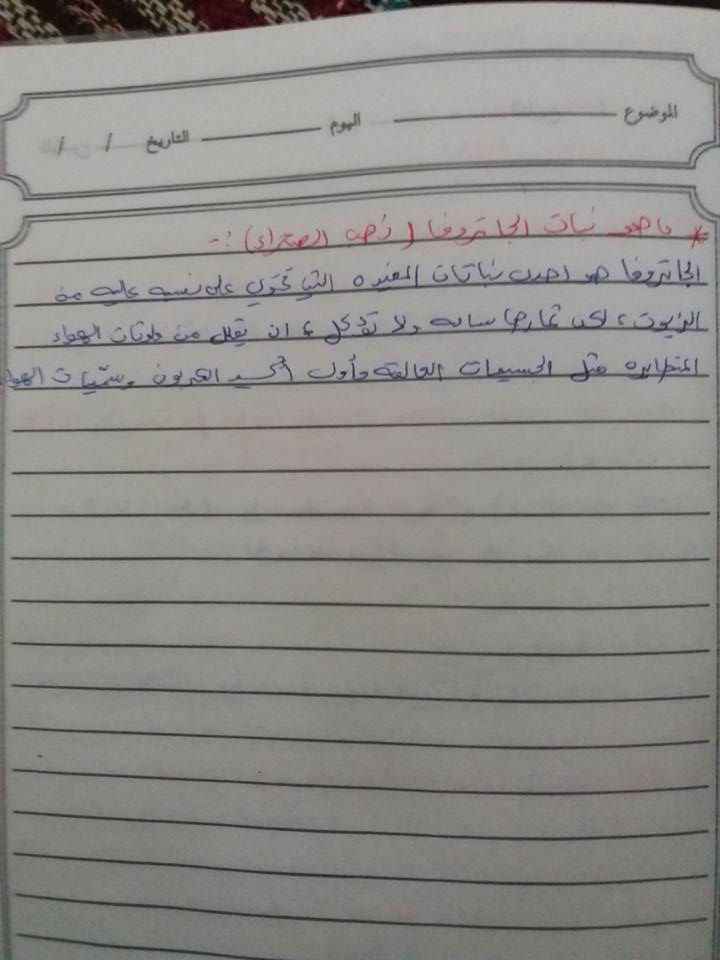 الموضوع اليوم التاريخ / /
* ما هو نبات الجاتروفا (ذهب الصحراء) :-
الجاتروفا هو احدى نباتات المفيده التي تحتوي على نسبه عاليه من
الزيوت، لكن ثمارها سامه ولا تؤكل، ان يقلل من ملوثات الهواء
المتطايره مثل الجسيمات العالقة وأول أكسيد الكربون و